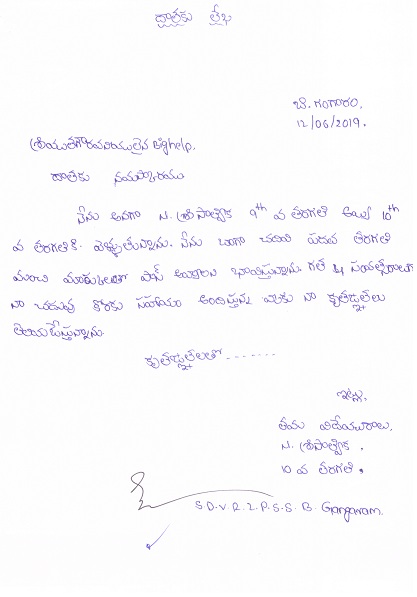 దాతకు లేఖ
బి. గంగారం.
12/06/2019.
శ్రీయుత గౌరవనీయులైన Bighelp,
దాతకు నమస్కారము
నేను అనగా N. శ్రీ సాత్విక 9th వ తరగతి అయి 10th
వ తరగతికి వెళ్ళుతున్నాను. నేను బాగా చదివి పదవ తరగతి
మంచి మార్కులతో పాస్ అవ్వాలని భావిస్తున్నాను. గత 4 సంవత్సరాలుగా
నా చదువు కొరకు సహాయం అందిస్తున్న మీకు నా కృతజ్ఞతలు
తెలియచేస్తున్నాను.
కృతజ్ఞతలతో -------
ఇట్లు,
తమ విధేయురాలు,
N. శ్రీ సాత్విక .
10 వ తరగతి .
S.D.V.R.Z.P.S.S. B. Gangaram.